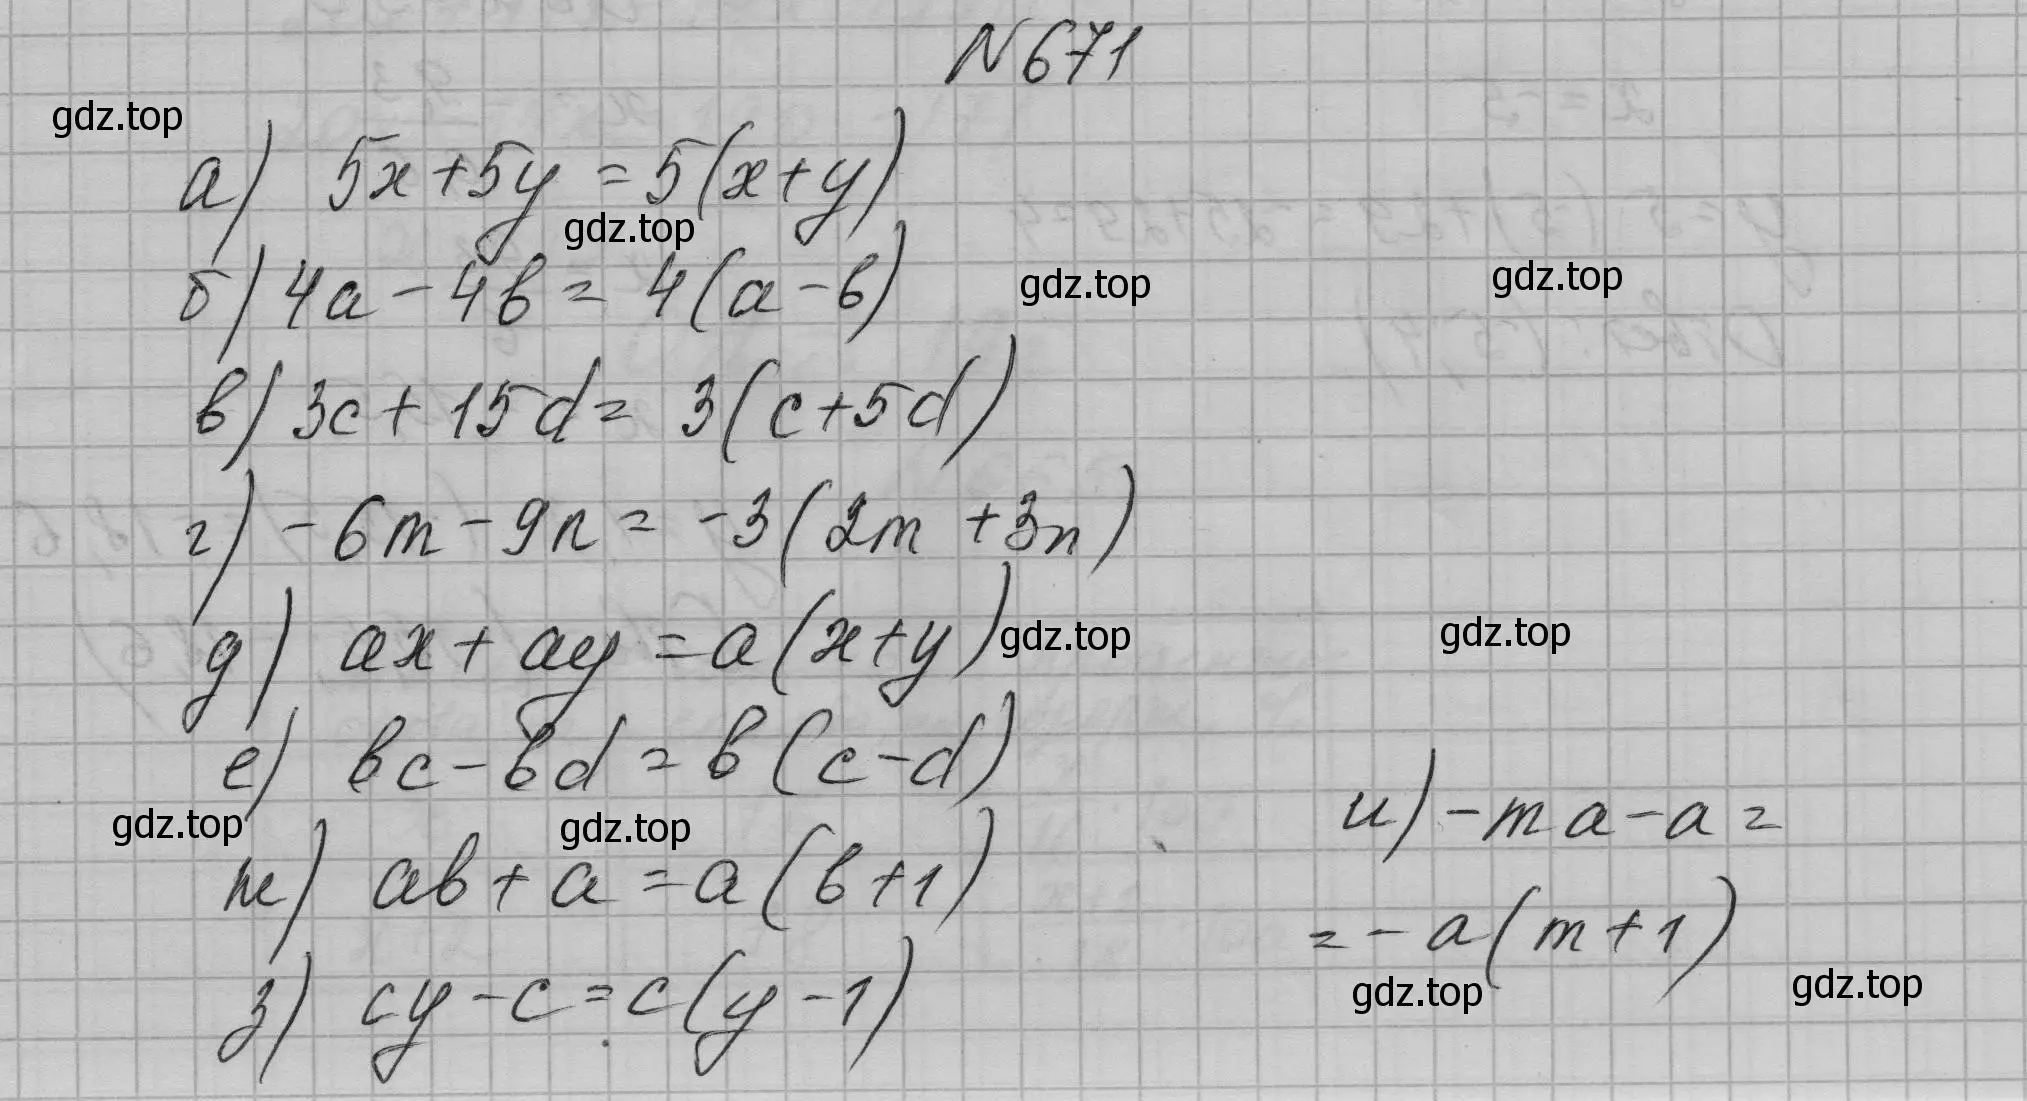 N 671
gdz.top
а) 5x+5y = 5(x+y)
gdz.top
б) 4a - 4b = 4(a - b)
gdz.top
gdz.top
в) 3c + 15d = 3(c+5d)
г) -6m - 9n = -3(2m + 3n)
д) ax + ay = a(x+y)
gdz.top
gdz.top
е) bc - bd = b(c-d)
gdz.top
gdz.top
ж) ab + a = a(b+1)
з) cy - c = c(y-1)
и) -ma - a =
= - a(m+1)
gdz.top
gdz.top